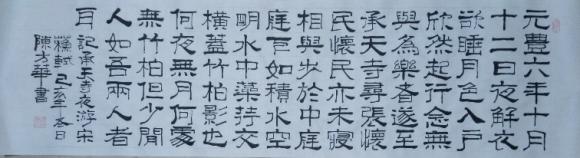 元豐六年十月
十二日夜解衣
欲睡月色入戶
欣然起行念無
與為樂者遂至
承天寺尋張懷
民懷民亦未寢
相與步於中庭
庭下如積水空
明水中藻荇交
橫蓋竹柏影也
何夜無月何處
無竹柏但少閒
人如吾兩人者
耳 記承天寺夜游宋
蘇軾己亥春日
陳方華書